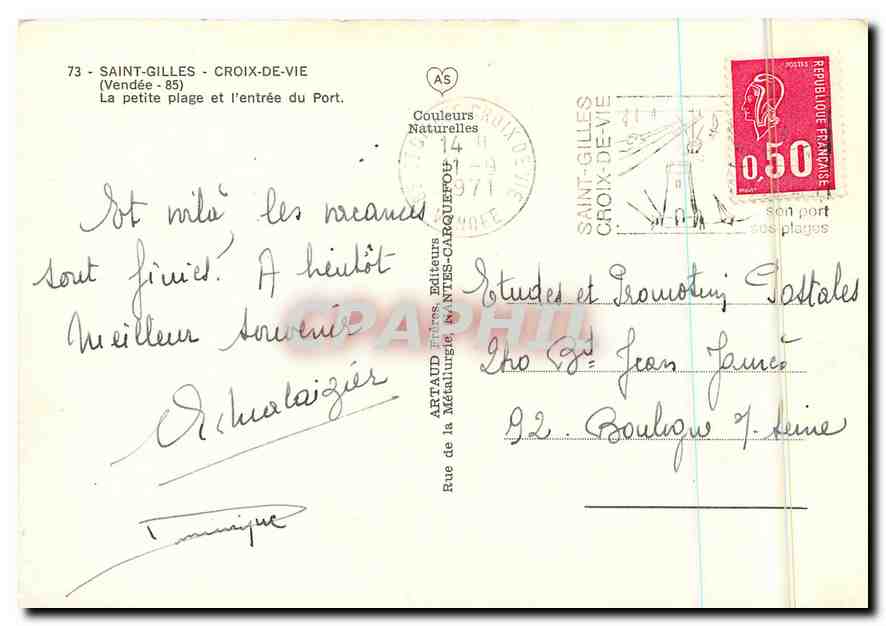 73 - SAINT-GILLES - CROIX-DE-VIE
(Vendée - 85)
La petite plage et l'entrée du Port.
AS
Couleurs
Naturelles
Et voilà, les vacances
sont finies! A bientôt
Meilleur souvenir
Dominique
ARTAUD Frères, Editeurs
Rue de la Métallurgie, NANTES-CARQUEFOU
CROIX DE VIE
14 H
1971
VENDEE
SAINT-GILLES
CROIX-DE-VIE
son port
ses plages
POSTES
REPUBLIQUE FRANÇAISE
0,50
Etudes et Promotions Postales
240 Bd Jean Jaurès
92. Boulogne s/. Seine
CPAPHIL